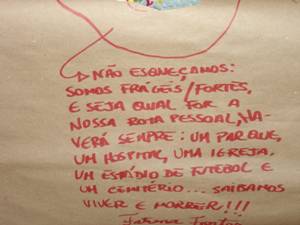 NÃO ESQUEÇAMOS:
SOMOS FRÁGEIS/FORTES,
E SEJA QUAL FOR A
NOSSA ROTA PESSOAL, HA-
VERÁ SEMPRE: UM PARQUE,
UM HOSPITAL, UMA IGREJA,
UM ESTÁDIO DE FUTEBOL E
UM CEMITÉRIO... SAIBAMOS
VIVER E MORRER!!!